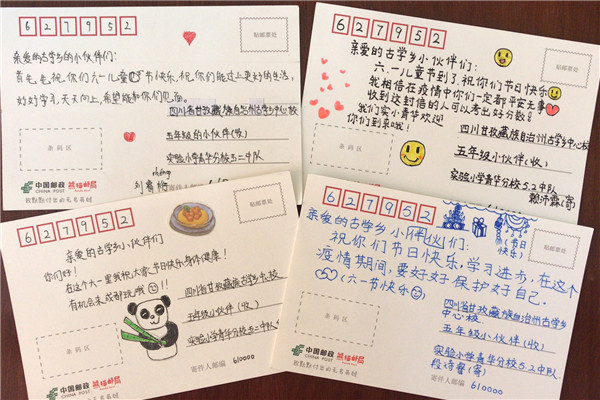 627952
贴邮票处
亲爱的古学乡的小伙伴们:
首先,祝你们六一儿童节快乐,祝你们能过上更好的生活,
好好学习,天天向上,希望能和你们见面。
四川省甘孜藏族自治州古学乡中心校
五年级的小伙伴(收)
实验小学青华分校五.二中队
条码区
中国邮政
CHINA POST
熊猫邮局
627952
贴邮票处
亲爱的古学乡小伙伴们:
六.一儿童节到了,祝你们节日快乐
我相信在疫情中你们一定都平安无事
收到这封信的人可以考出好分数!
我们实小青华欢迎
你们到来哦!
四川甘孜藏族自治州古学乡中心校
五年级小伙伴(收)
实验小学青华分校5.2中队
条码区
627952
贴邮票处
亲爱的古学乡小伙伴们
你们好!
在这个六一里我祝大家节日快乐身体健康!
有机会来成都找我哦!!
四川省甘孜藏族自治州古学乡中心校
五年级小伙伴(收)
实验小学青华分校五.二中队
条码区
中国邮政
CHINA POST
熊猫邮局
寄件人邮编 610000
627952
贴邮票处
亲爱的古学乡小伙伴们:
(节日快乐)
祝你们节日快乐,学习进步,在这个
疫情期间,要好好保护好自己。
(六一节快乐)
四川省甘孜藏族自治州古学乡
中心校
五年级小伙伴(收)
实验小学青华分校5.2中队
段诗睿(寄)
条码区
中国邮政
CHINA POST
熊猫邮局
寄件人邮编 610000